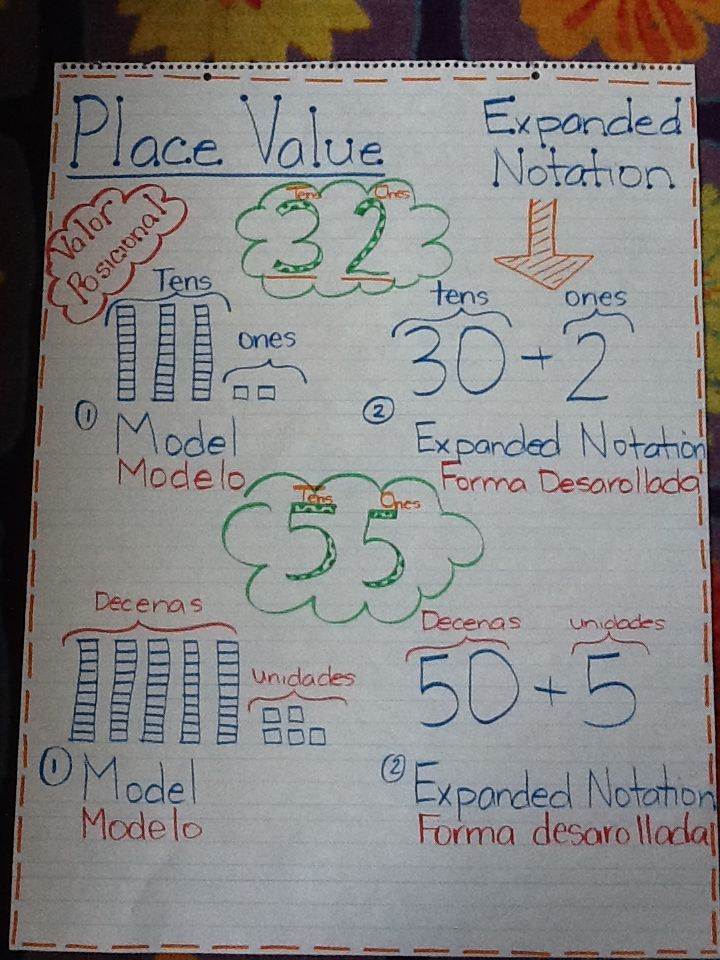 Place Value
Expanded
Notation
Valor
Posicional
Tens Ones
32
Tens
ones
tens ones
30 + 2
① Model
Modelo
② Expanded Notation
Forma Desarollada
Tens Ones
55
Decenas
unidades
Decenas unidades
50 + 5
① Model
Modelo
② Expanded Notation
Forma desarollada